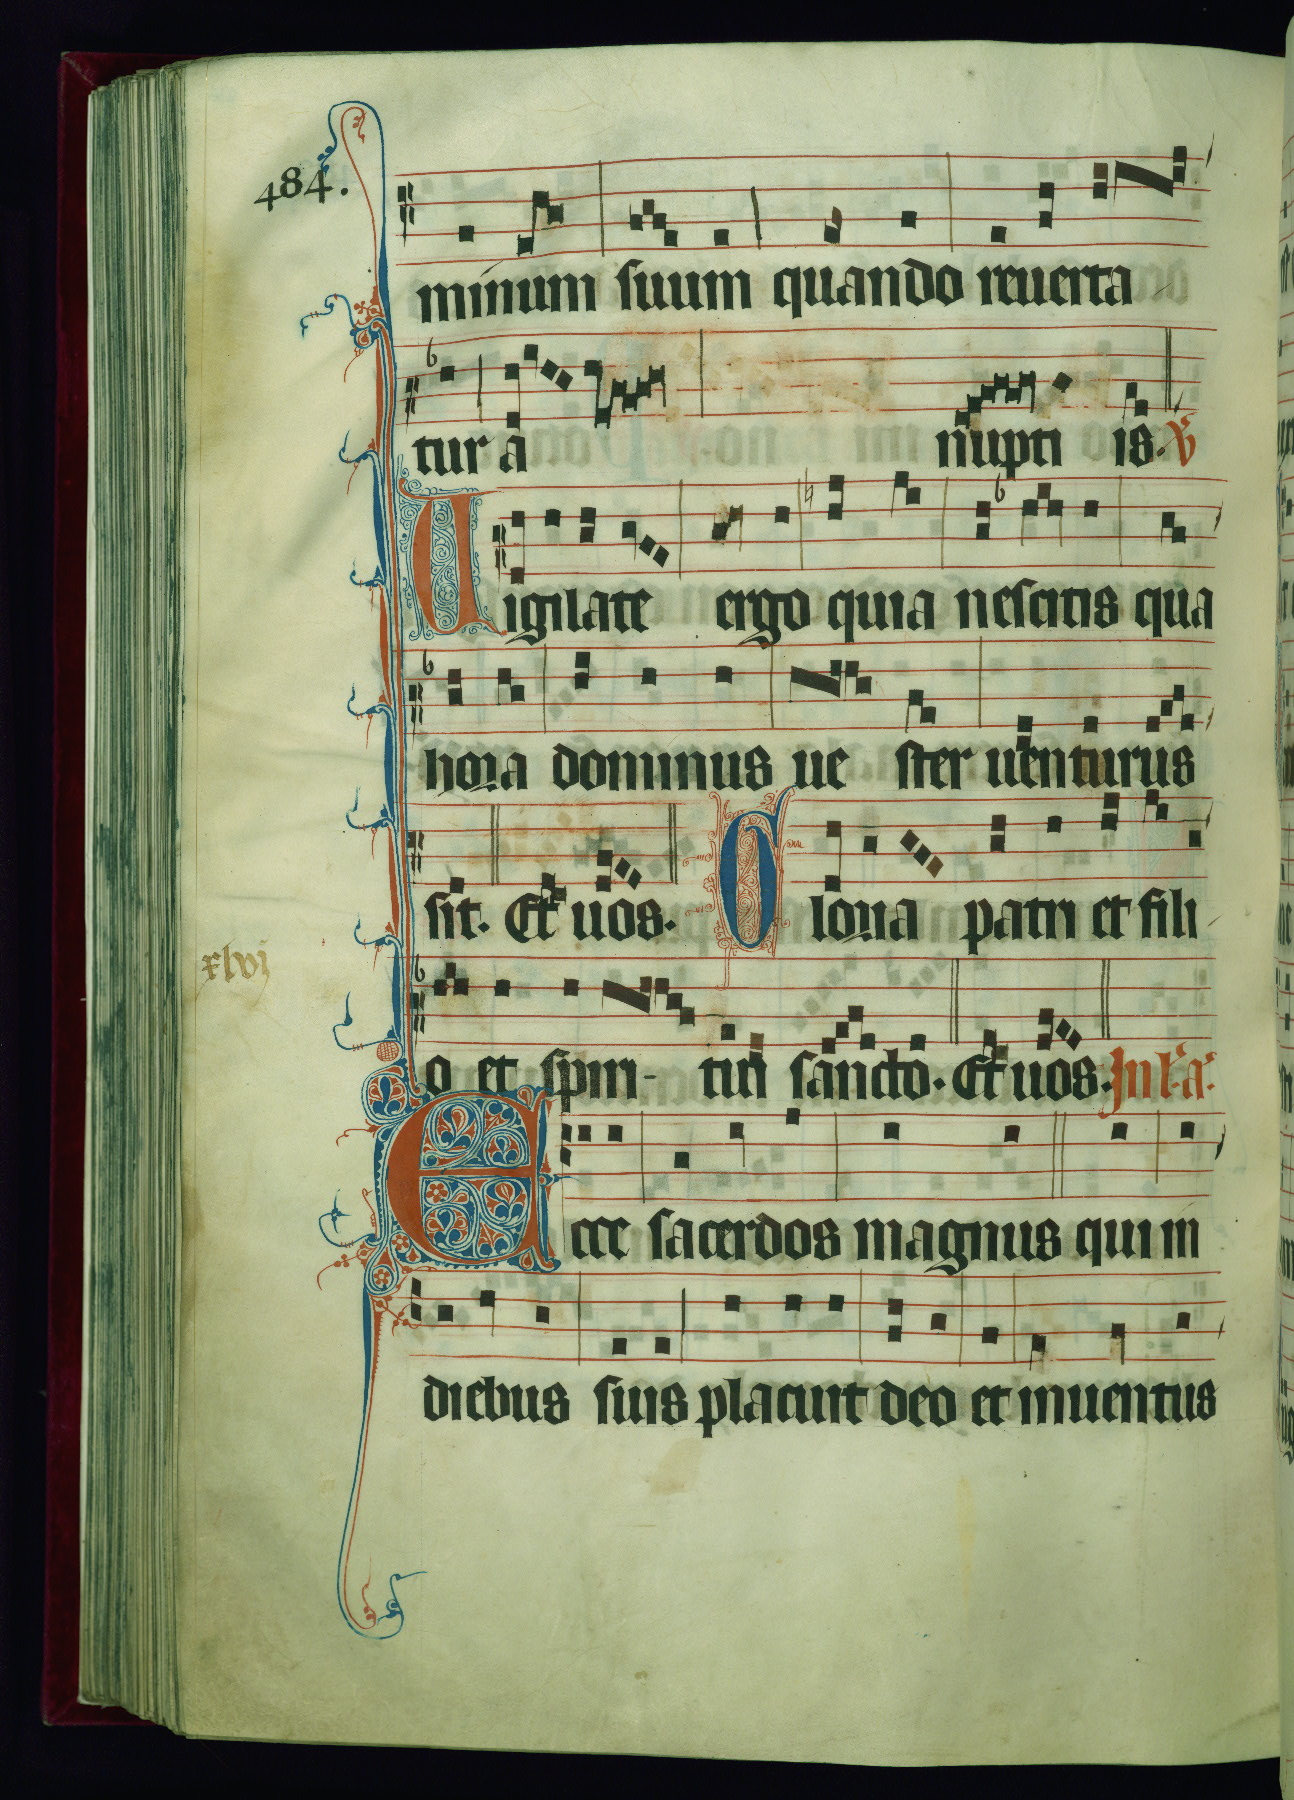 484.
minum suum quando reuerta
tur a nupti is. ℣
Uigilate ergo quia nescitis qua
hora dominus ue ster uenturus
sit. Et uos. Gloria patri et fili
xlvj
o et spiri- tui sancto. Et uos. In l. a.
Ecce sacerdos magnus qui in
diebus suis placuit deo et inuentus